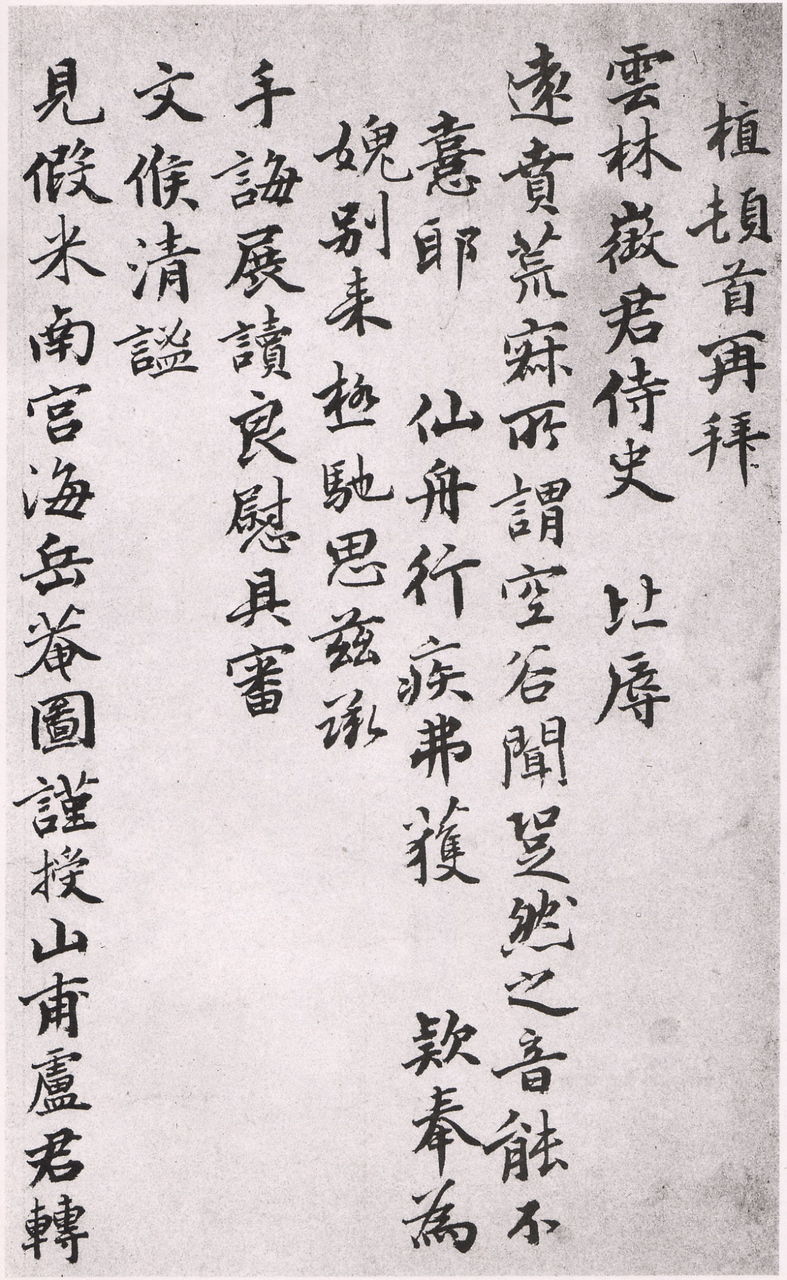 植頓首再拜
雲林徵君侍史 比辱
遠賁荒寐所謂空谷聞跫然之音能不
憙耶 仙舟行疾弗獲 款奉為
媿别来極馳思兹承
手誨展讀良慰具審
文候清謐
見假米南宫海岳菴圖謹授山甫盧君轉